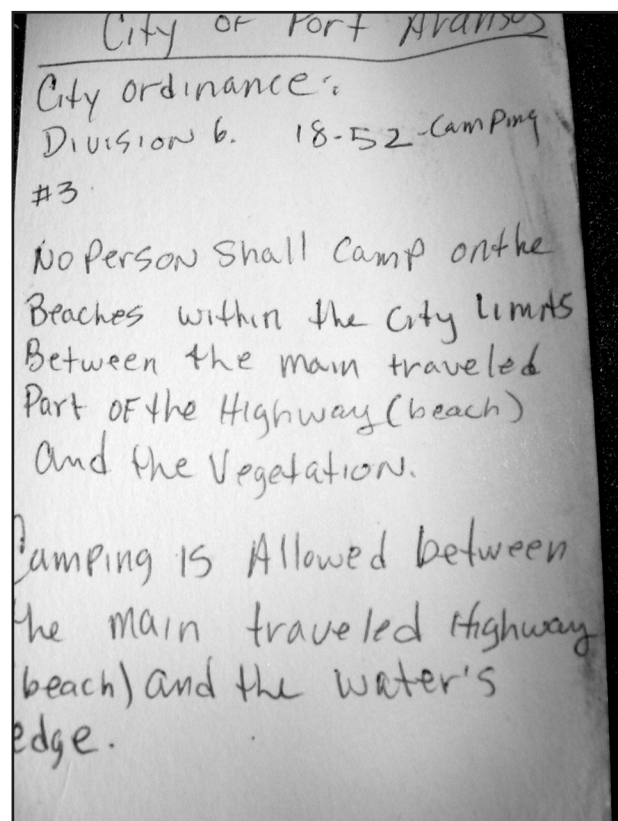 City of Port Aransas
City ordinance:
Division 6. 18-52-Camping
#3
No Person Shall Camp on the
Beaches within the City Limits
Between the main traveled
Part of the Highway (beach)
and the Vegetation.
Camping is Allowed between
the main traveled Highway
(beach) and the water's
edge.